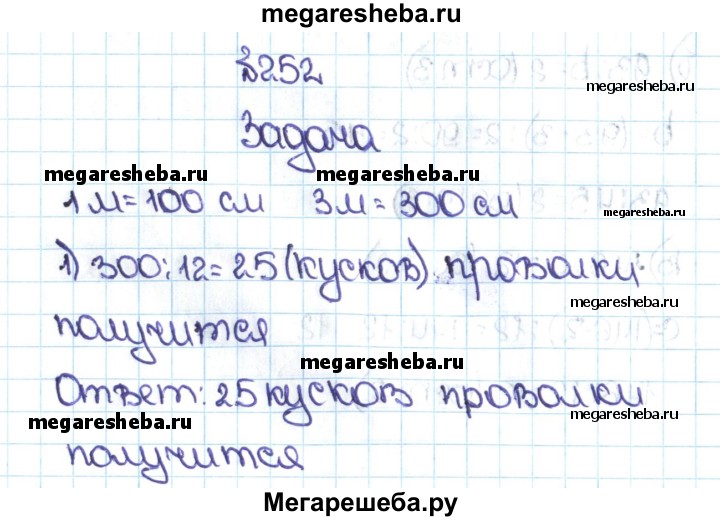 megaresheba.ru
№252
megaresheba.ru
Задача
megaresheba.ru megaresheba.ru
1 м = 100 см 3 м = 300 см
megaresheba.ru
1) 300:12=25 (кусков) проволки
megaresheba.ru
получится
megaresheba.ru
Ответ: 25 кусков проволки
megaresheba.ru megaresheba.ru
получится
Мегарешеба.ру